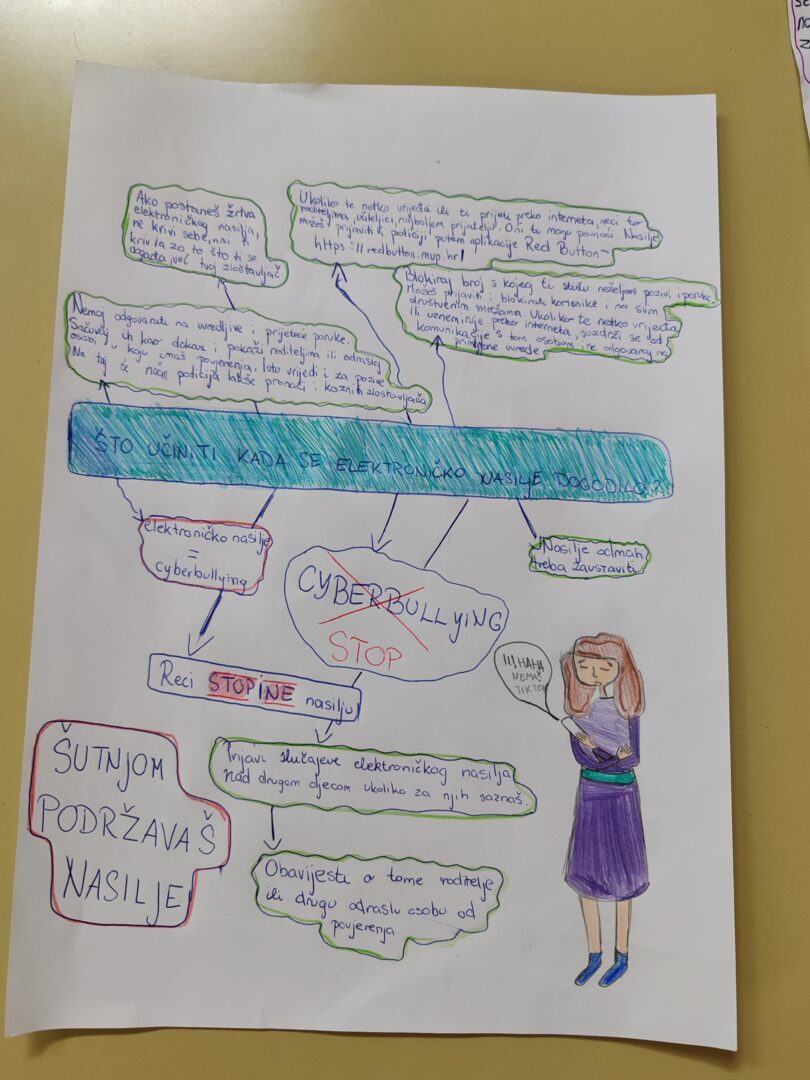 Ako postaneš žrtva
elektroničkog nasilja,
ne krivi sebe, nisi ti
kriv/la za to što ti se
događa, već tvoj zlostavljač
Ukoliko te netko vrijeđa ili ti prijeti preko interneta, reci to
roditeljima, učiteljici, najboljem prijatelju. Oni ti mogu pomoći. Nasilje
možeš prijaviti k policiji putem aplikacije Red Button
https://redbutton.mup.hr/
Blokiraj broj s kojeg ti stižu neželjeni pozivi i poruke.
Možeš prijaviti i blokirati korisnike i na svim
društvenim mrežama. Ukoliko te netko vrijeđa
ili uznemiruje preko interneta, suzdrži se od
komunikacije s tom osobom i ne odgovaraj na
primljene uvrede
Nemoj odgovarati na uvredljive i prijeteće poruke.
Sačuvaj ih kao dokaz i pokaži roditeljima ili odrasloj
osobi u koju imaš povjerenja. Isto vrijedi i za pozive
Na taj će način policija lakše pronaći i kazniti zlostavljača
ŠTO UČINITI KADA SE ELEKTRONIČKO NASILJE DOGODILO?
elektroničko nasilje
=
cyberbullying
CYBERBULLYING
STOP
Nasilje odmah
treba zaustaviti
Reci STOP i NE nasilju
!!! HAHA
NEMAŠ
TIKTOK
ŠUTNJOM
PODRŽAVAŠ
NASILJE
Prijavi slučajeve elektroničkog nasilja
nad drugom djecom ukoliko za njih saznaš.
Obavijesti o tome roditelje
ili drugu odraslu osobu od
povjerenja